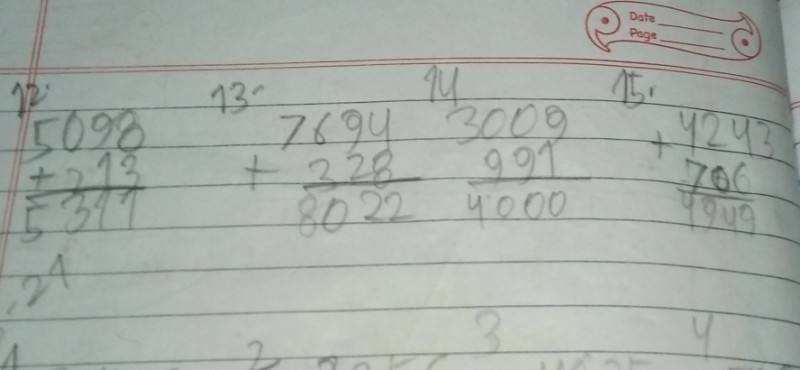 Date
Page
12. 13. 14 15.
5098 7694 3009 + 4243
+ 213 + 328 991 706
5311 8022 4000 4949
21
1 2 3 4